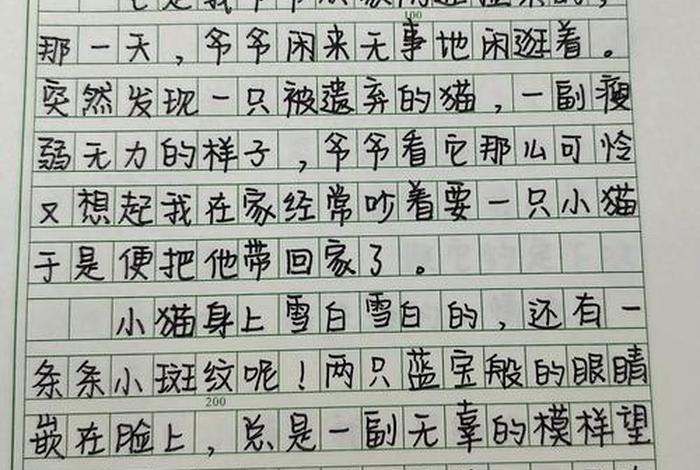 它是我爷爷
100
那一天，爷爷闲来无事地闲逛着。
突然发现一只被遗弃的猫，一副瘦
弱无力的样子，爷爷看它那么可怜
又想起我在家经常吵着要一只小猫
于是便把他带回家了。
小猫身上雪白雪白的，还有一
条条小斑纹呢！两只蓝宝般的眼睛
200
嵌在脸上，总是一副无辜的模样望